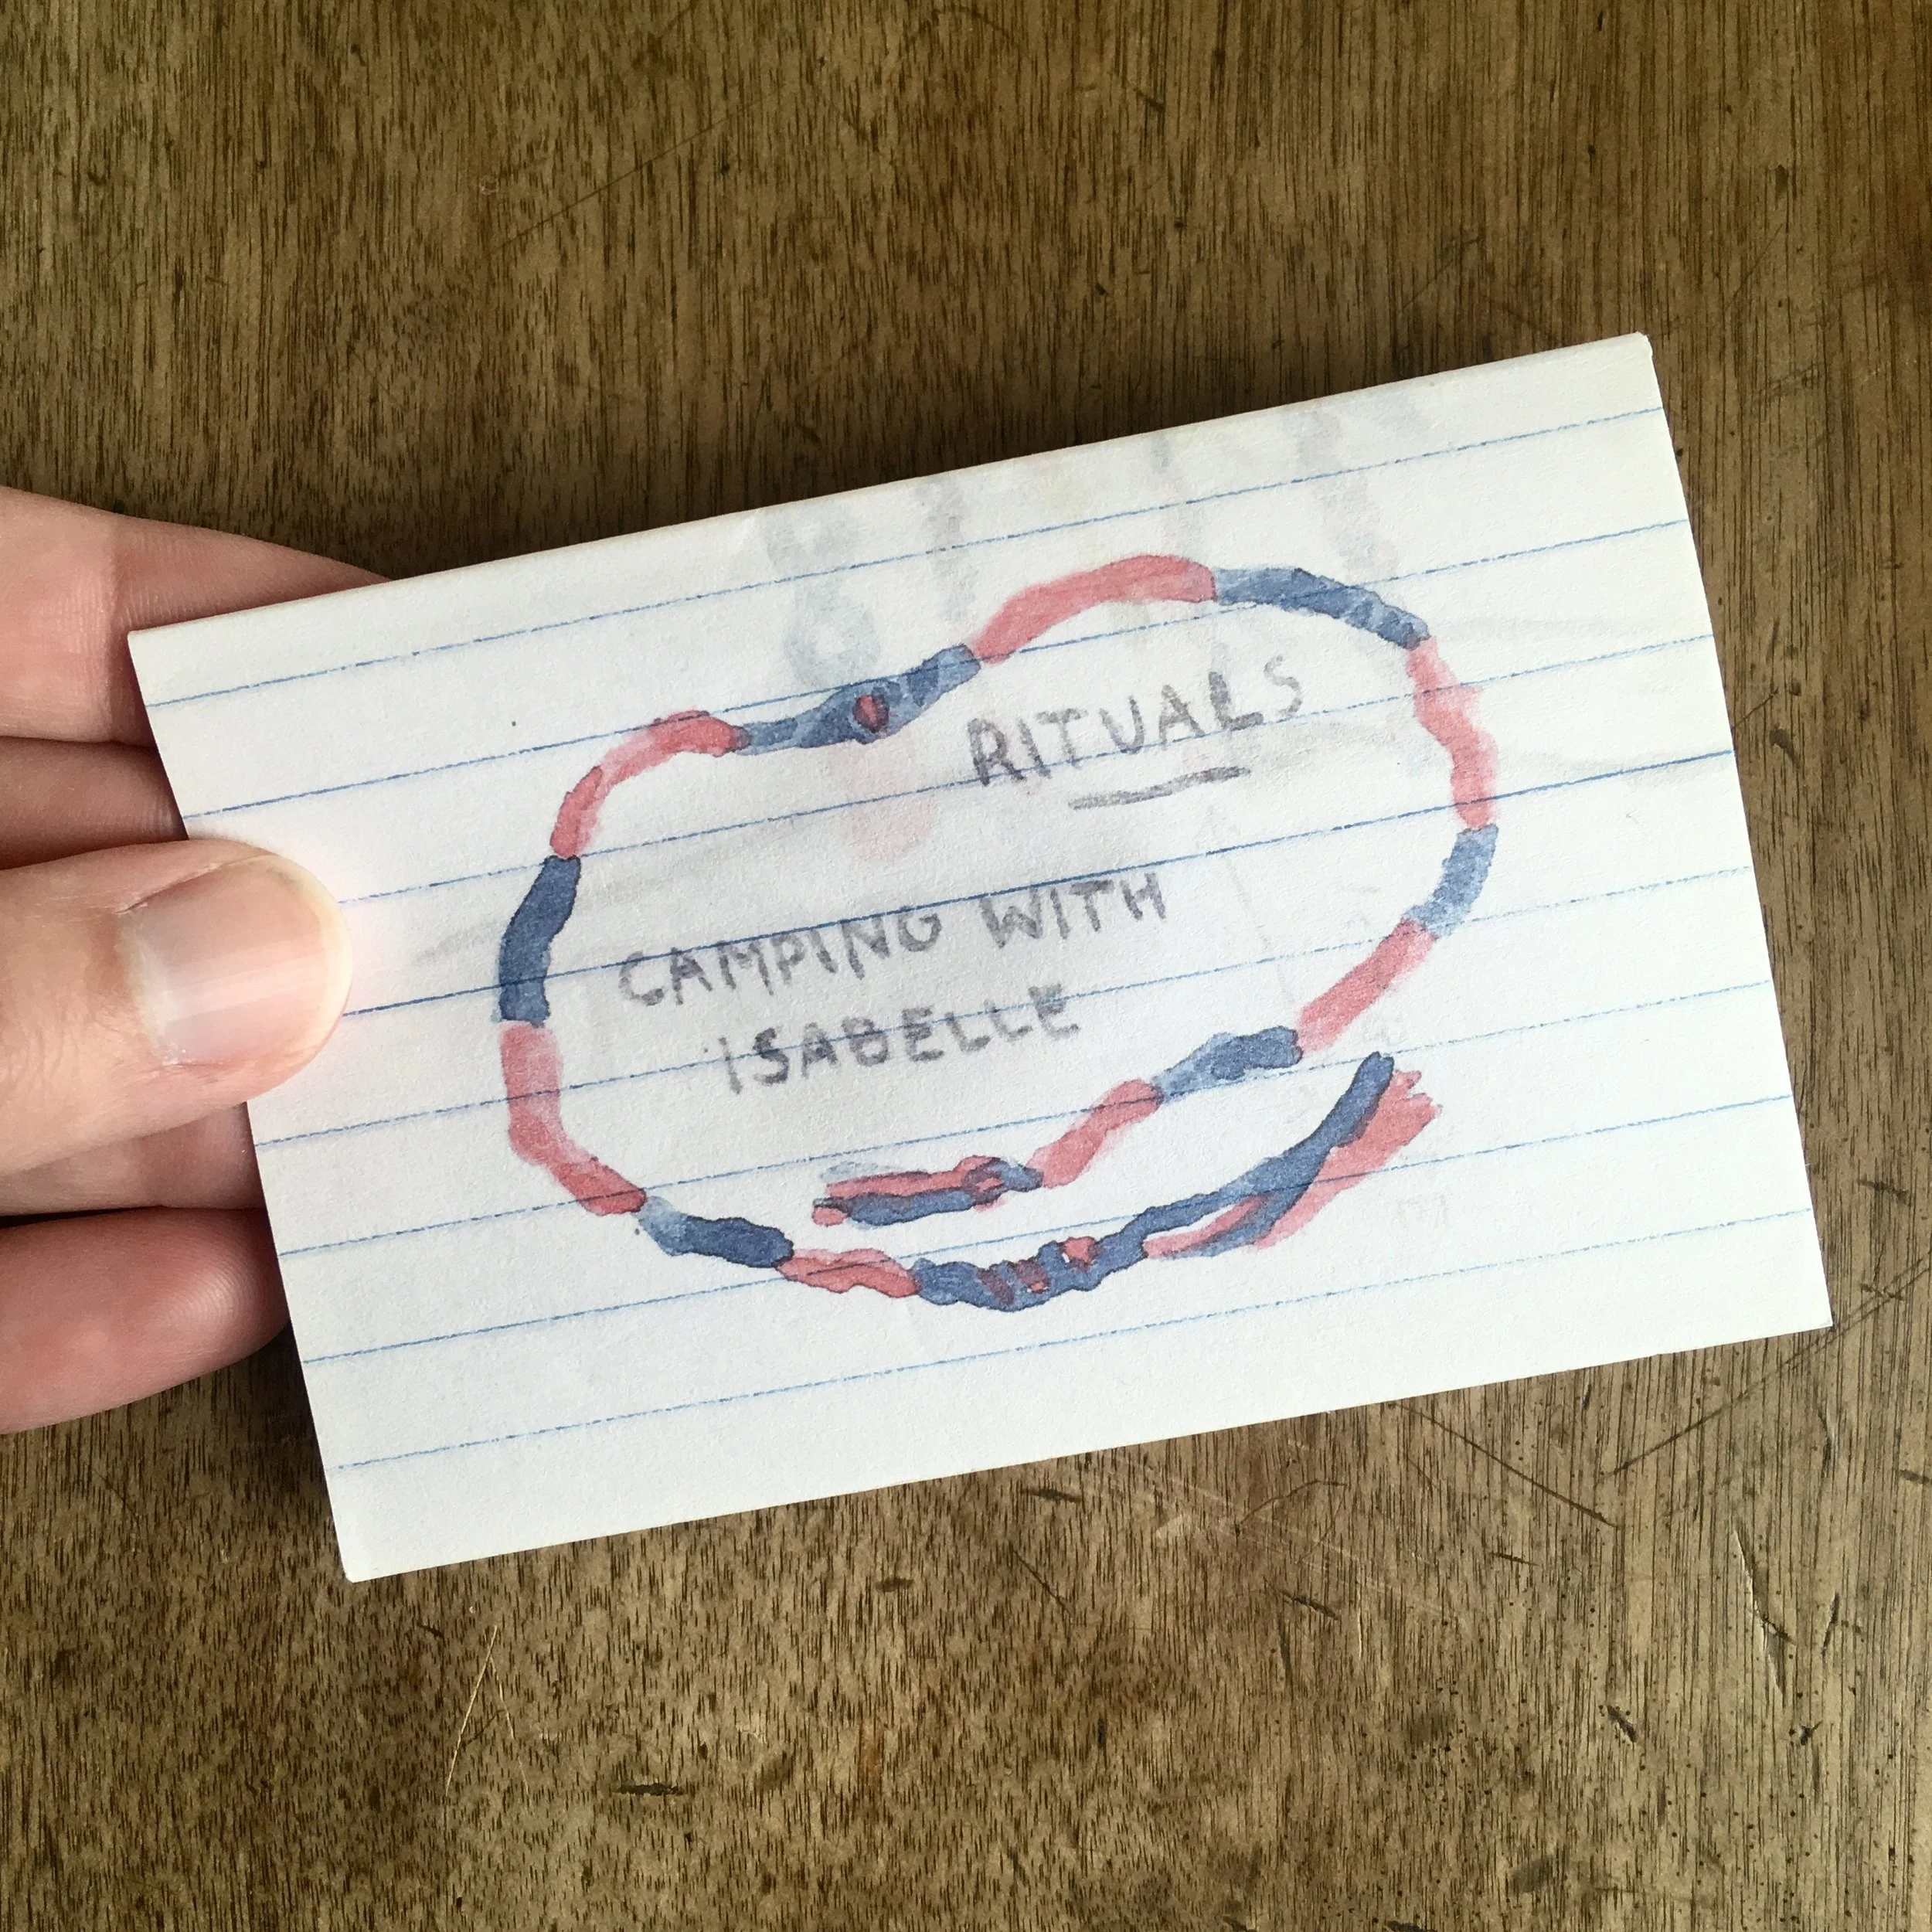 RITUALS
CAMPING WITH
ISABELLE